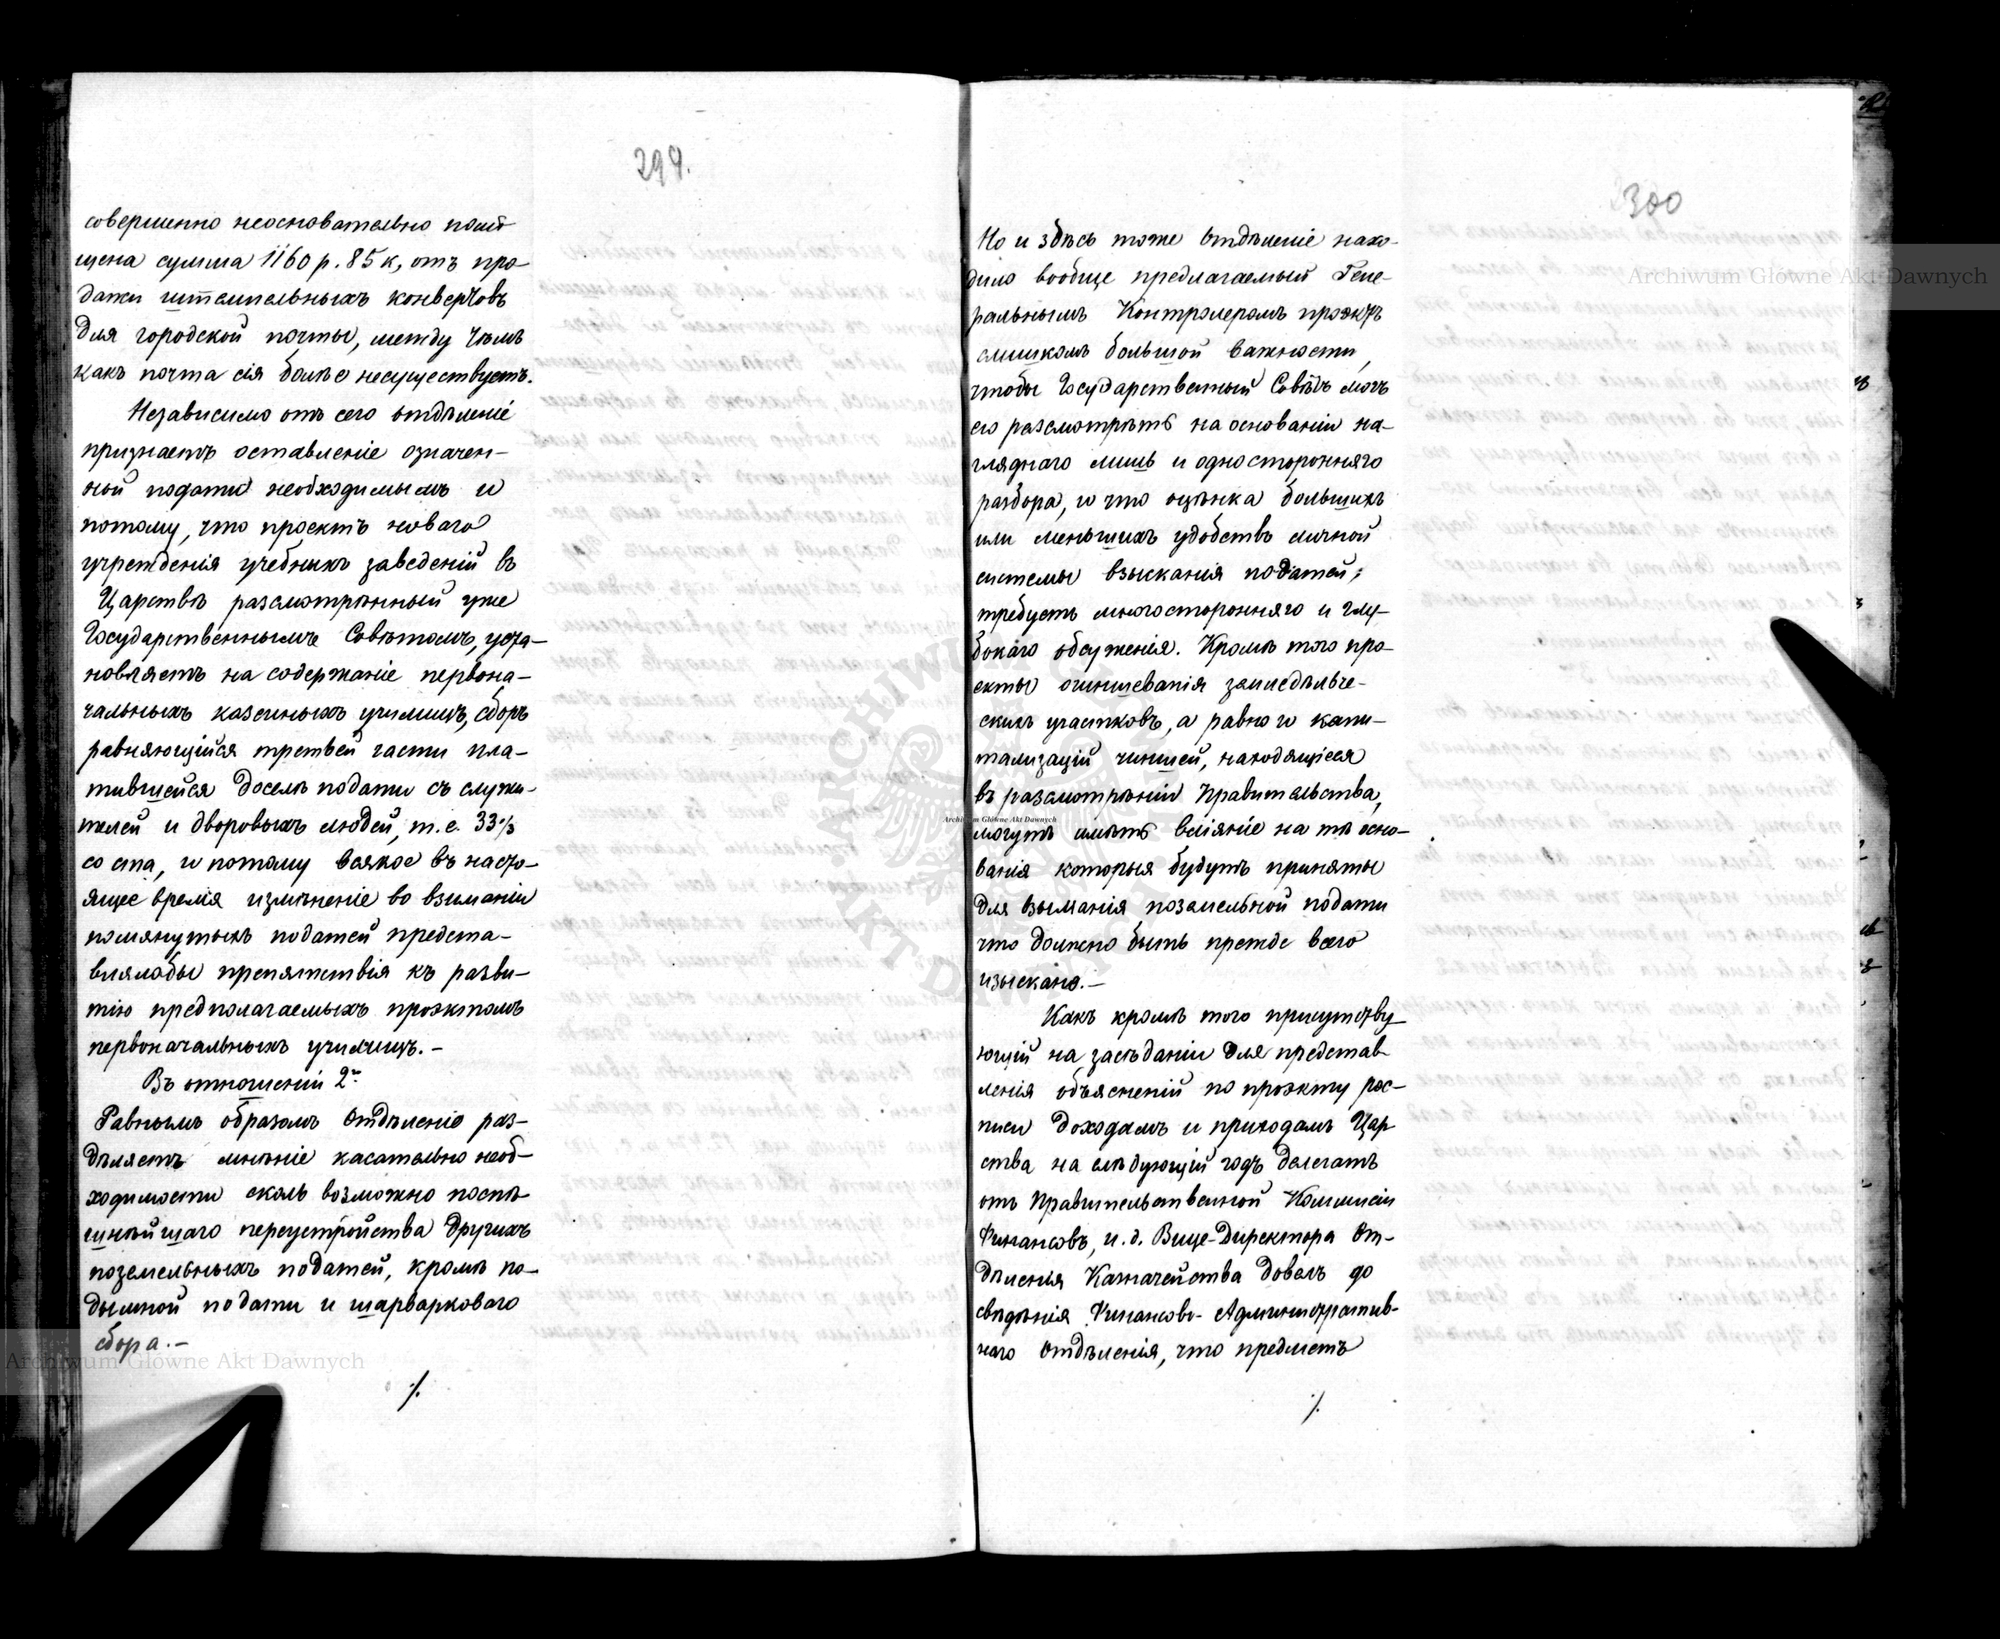 299.
совершенно неосновательно помѣ-
щена сумма 1160 р. 85 к, отъ про-
дажи штемпельныхъ конвертовъ
для городской почты, между чѣмъ
какъ почта сія болѣе несуществуетъ.
Независимо отъ сего отдѣленіе
признаетъ оставленіе означен-
ной подати необходимымъ и
потому, что проектъ новаго
учрежденія учебныхъ заведеній въ
Царствѣ разсмотрѣнный уже
Государственнымъ Совѣтомъ, уста-
новляетъ на содержаніе первона-
чальныхъ казенныхъ училищъ, сборъ
равняющійся третьей части пла-
тившейся доселѣ подати съ служи-
телей и дворовыхъ людей, т. е. 33⅓
со ста, и потому всякое въ насто-
ящее время измѣненіе во взиманіи
помянутыхъ податей предста-
влялобы препятствія къ разви-
тію предполагаемыхъ проэктомъ
первоначальныхъ училищъ. –
Въ отношеніи 2.
Равнымъ образомъ Отдѣленіе раз-
дѣляетъ мнѣніе касательно необ-
ходимости сколь возможно поспѣ-
шнѣйшаго переустройства другихъ
поземельныхъ податей, кромѣ по-
дымной подати и шарварковаго
сбора. –
./.
300
Но и здѣсь тоже Отдѣленіе нахо-
дило вообще предлагаемый Гене-
ральнымъ Контролеромъ проэктъ
слишкомъ большой важности,
чтобы Государственный Совѣтъ могъ
его разсмотрѣть на основаніи на-
гляднаго лишь и односторонняго
разбора, и что оцѣнка большихъ
или меньшихъ удобствъ личной
системы взысканія податей,
требуетъ многосторонняго и глу-
бокаго обсуженія. Кромѣ того про-
екты очиншеванія земледѣльче-
скихъ участковъ, а равно и капи-
тализацій чиншей, находящіеся
въ разсмотрѣніи Правительства,
могутъ имѣть вліяніе на тѣ осно-
ванія которыя будутъ приняты
для взыманія поземельной подати
что должно быть прежде всего
изыскано. –
Какъ кромѣ того присутству-
ющій на засѣданіи для представ-
ленія объясненій по проэкту рос-
писи доходамъ и приходамъ Цар-
ства на слѣдующій годъ делегатъ
отъ Правительственной Коммисіи
Финансовъ, и. д. Вице-Директора От-
дѣленія Казначейства довелъ до
свѣдѣнія Финансово-Административ-
наго Отдѣленія, что предметъ
./.
Archiwum Główne Akt Dawnych
Archiwum Główne Akt Dawnych
Archiwum Główne Akt Dawnych